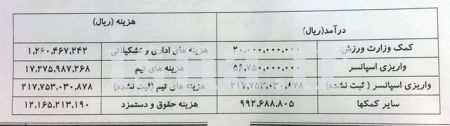 درآمد(ریال) هزینه (ریال)
کمک وزارت ورزش ۲۰,۰۰۰,۰۰۰,۰۰۰ هزینه های اداری و تشکیلاتی ۱,۲۶۰,۴۶۷,۲۴۲
واریزی اسپانسر ۵۶,۷۵۰,۰۰۰,۰۰۰ هزینه های تیم ۱۷,۲۷۵,۹۸۷,۲۶۸
واریزی اسپانسر ( ثبت نشده) ۲۱۷,۷۵۳,۰۳۰,۸۷۸ هزینه های تیم (ثبت نشده) ۲۱۷,۷۵۳,۰۳۰,۸۷۸
سایر کمکها ۹۹۲,۶۸۸,۸۰۵ هزینه حقوق و دستمزد ۱۲,۱۶۵,۲۱۳,۱۹۰